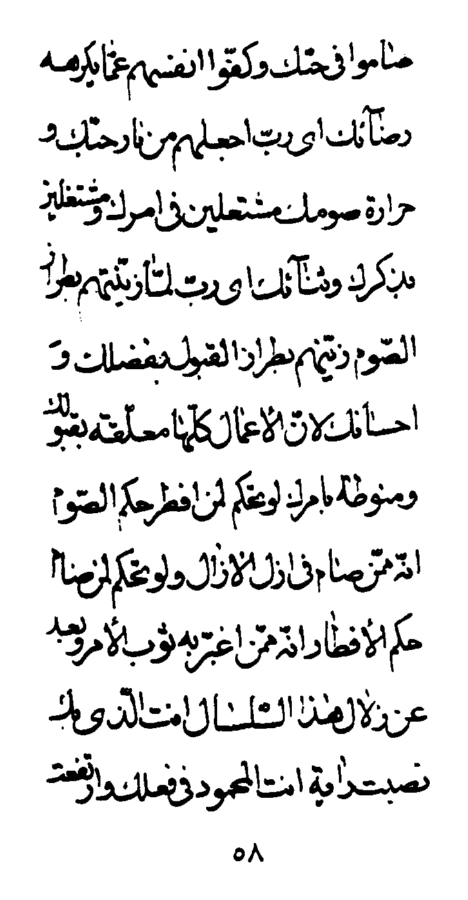 صاموا فی حبّک و کفّوا انفسهم عمّا یکرهه
رضآئک ای ربّ اجعلهم من نار حبّک و
حرارة صومک مشتعلین فی امرک و مشتغلین
بذکرک و ثنآئک ای ربّ لمّا زیّنتهم بطراز
الصّوم زیّنهم بطراز القبول بفضلک و
احسانک لانّ الأعمال کلّها معلّقة بقبولک
و منوطة بامرک لو تحکم لمن افطر حکم الصّوم
انّه ممّن صام فی ازل الآزال و لو تحکم لمن صام
حکم الأفطار انّه ممّن اغبرّ به ثوب الأمر و بعد
عن زلال هذا السّلسال انت الّذی بک
نصبت رایة انت المحمود فی فعلک و ارتفعت
٥٨